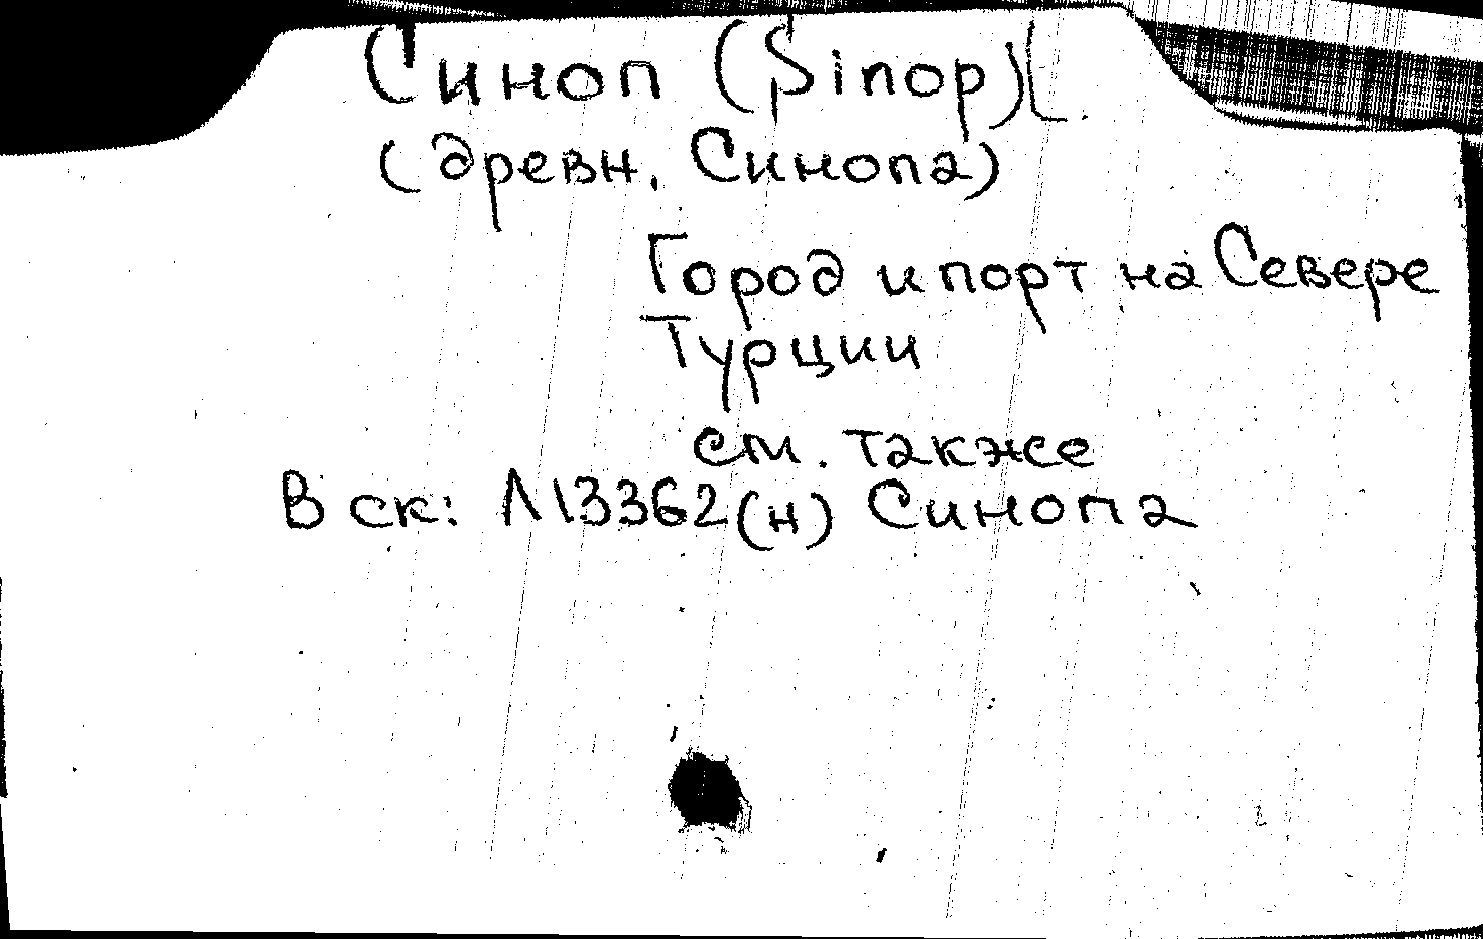 Синоп (Sinop)[.
(древн. Синопа)
Город и порт на Севере
Турции
см. также
В ск: Л13362(н) Синопа